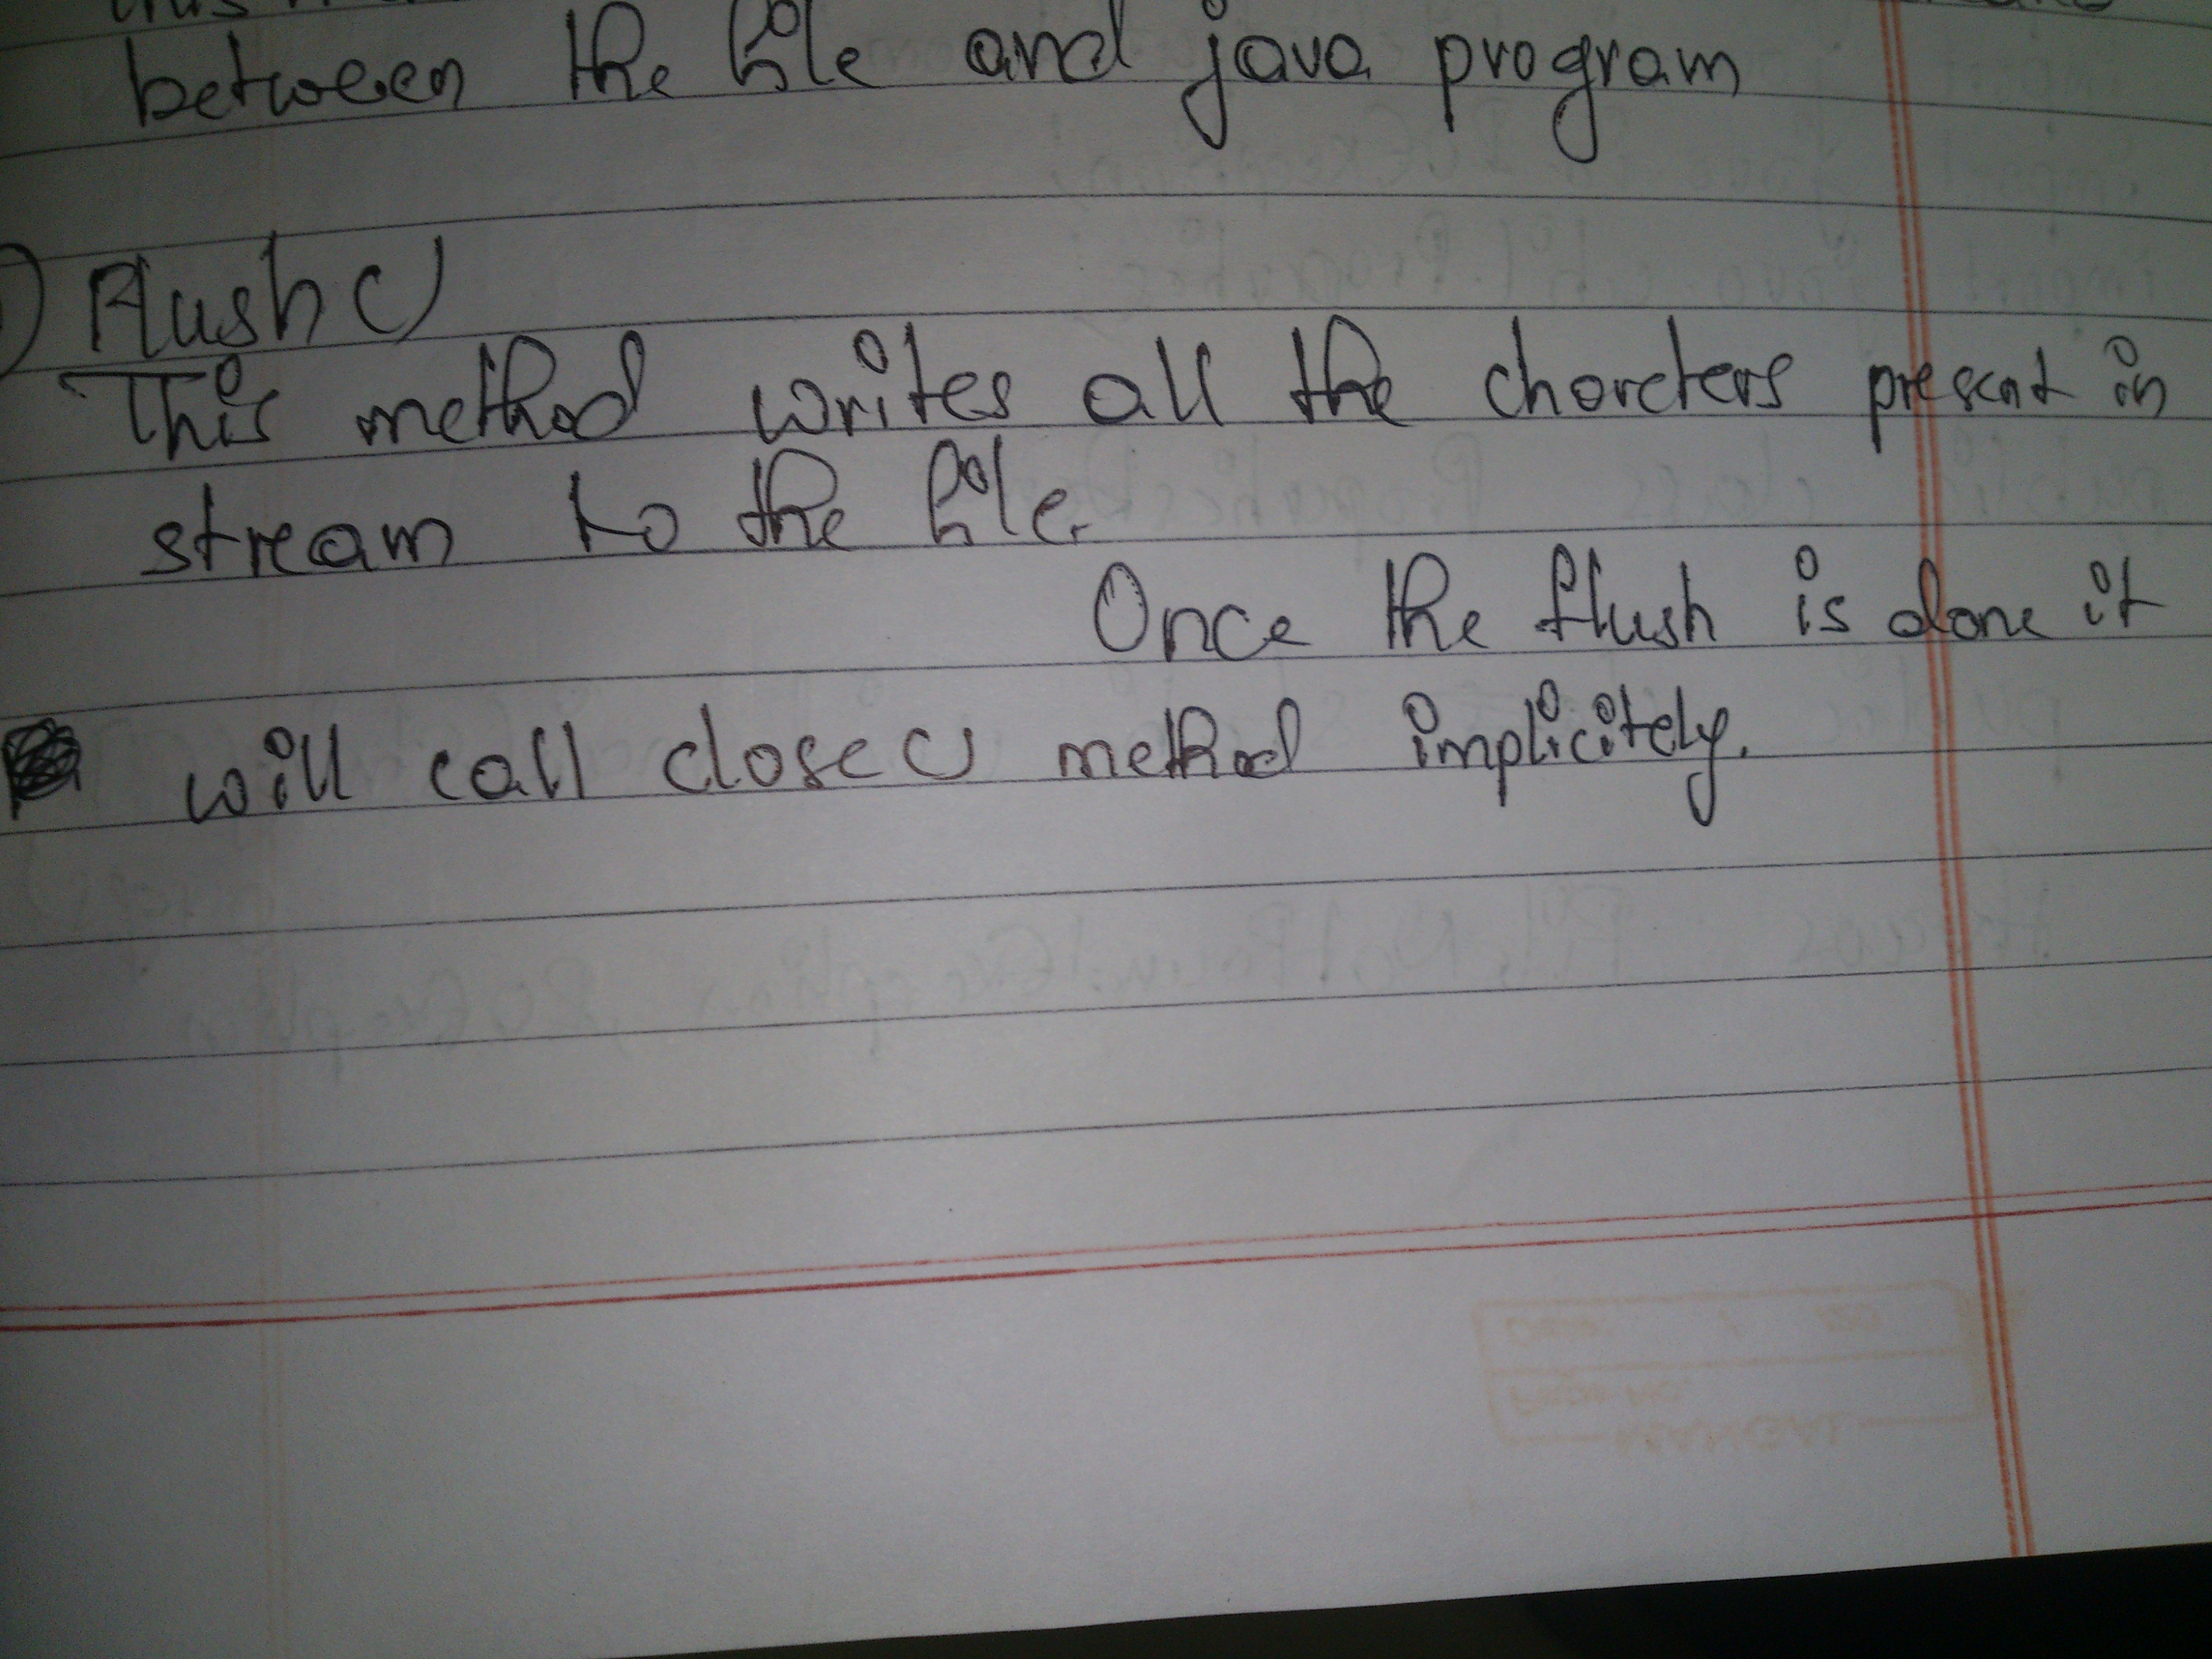 between the file and java program
) Flush()
This method writes all the chorcters present in
stream to the file.
Once the flush is done it
will call close() method implicitely.